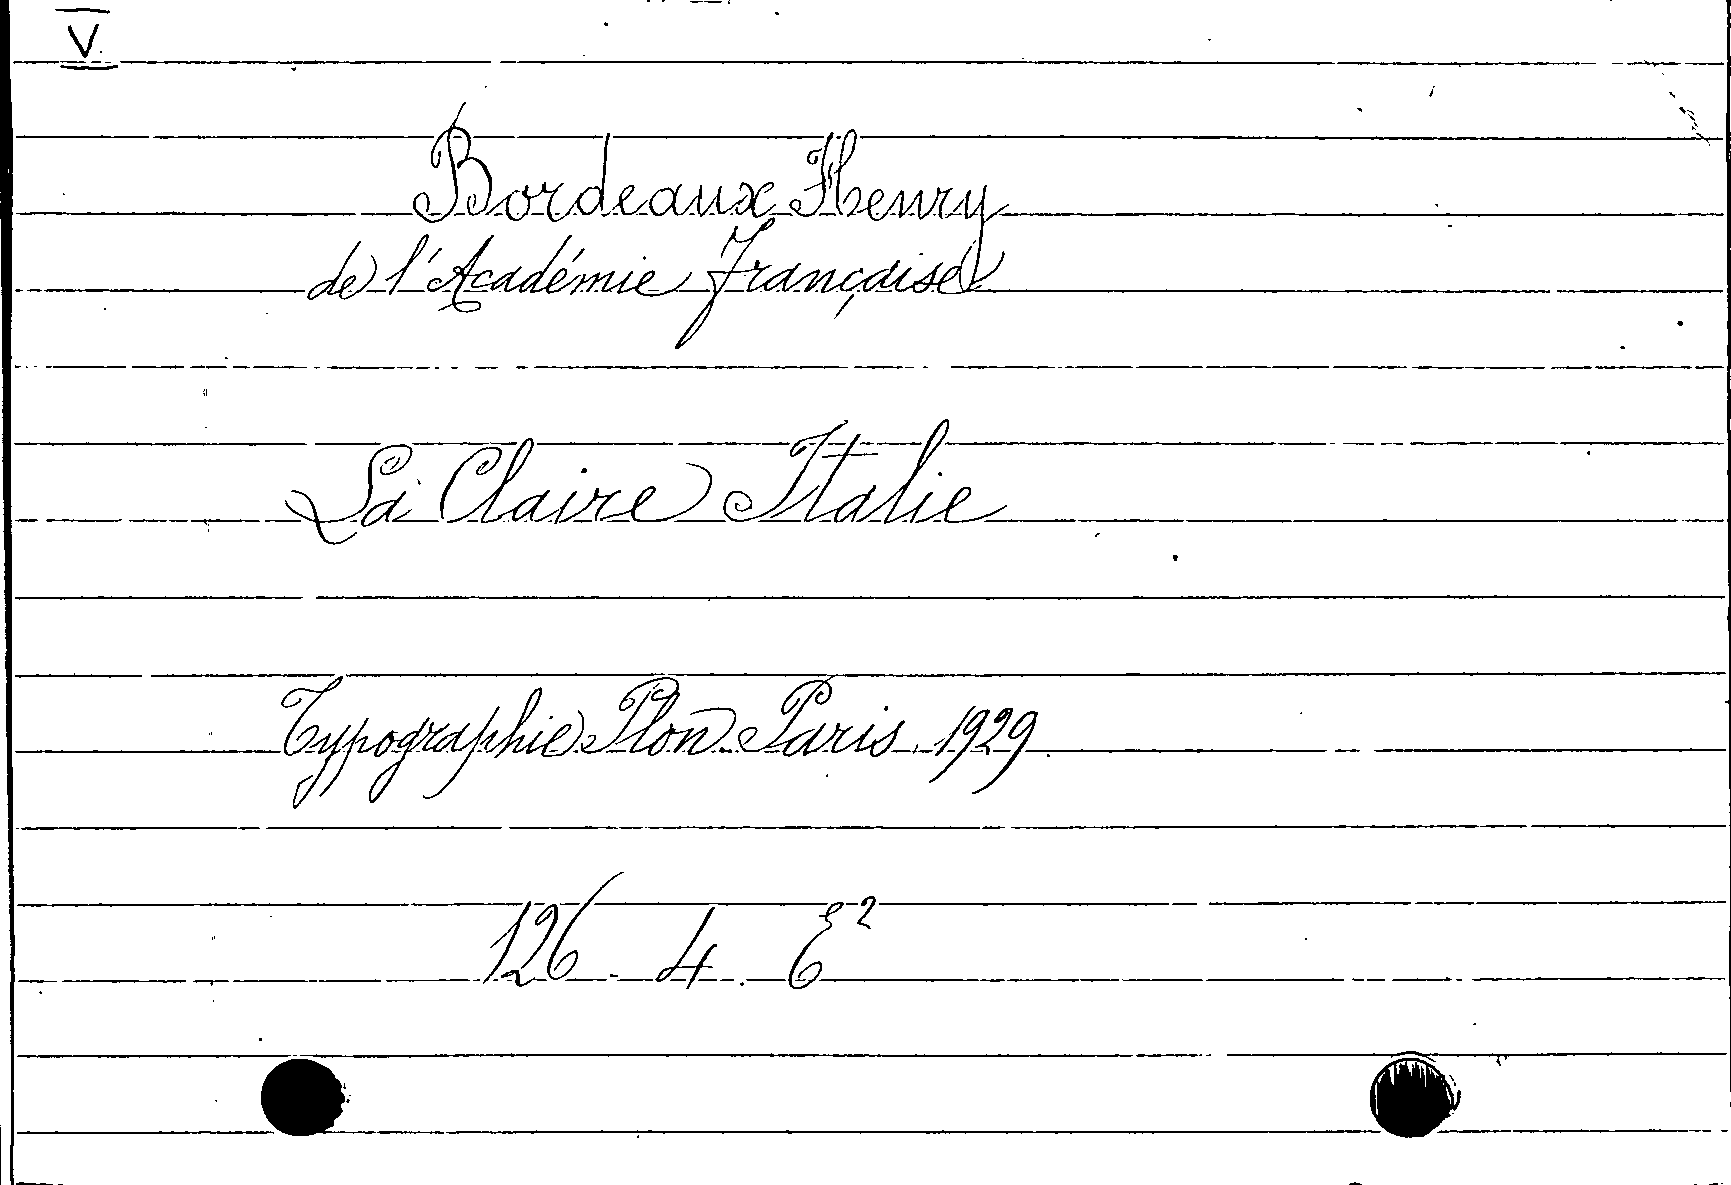 V
Bordeaux Henry
de l'Académie Française
La Claire Italie
Typographie Plon Paris 1929
126. 4. E²